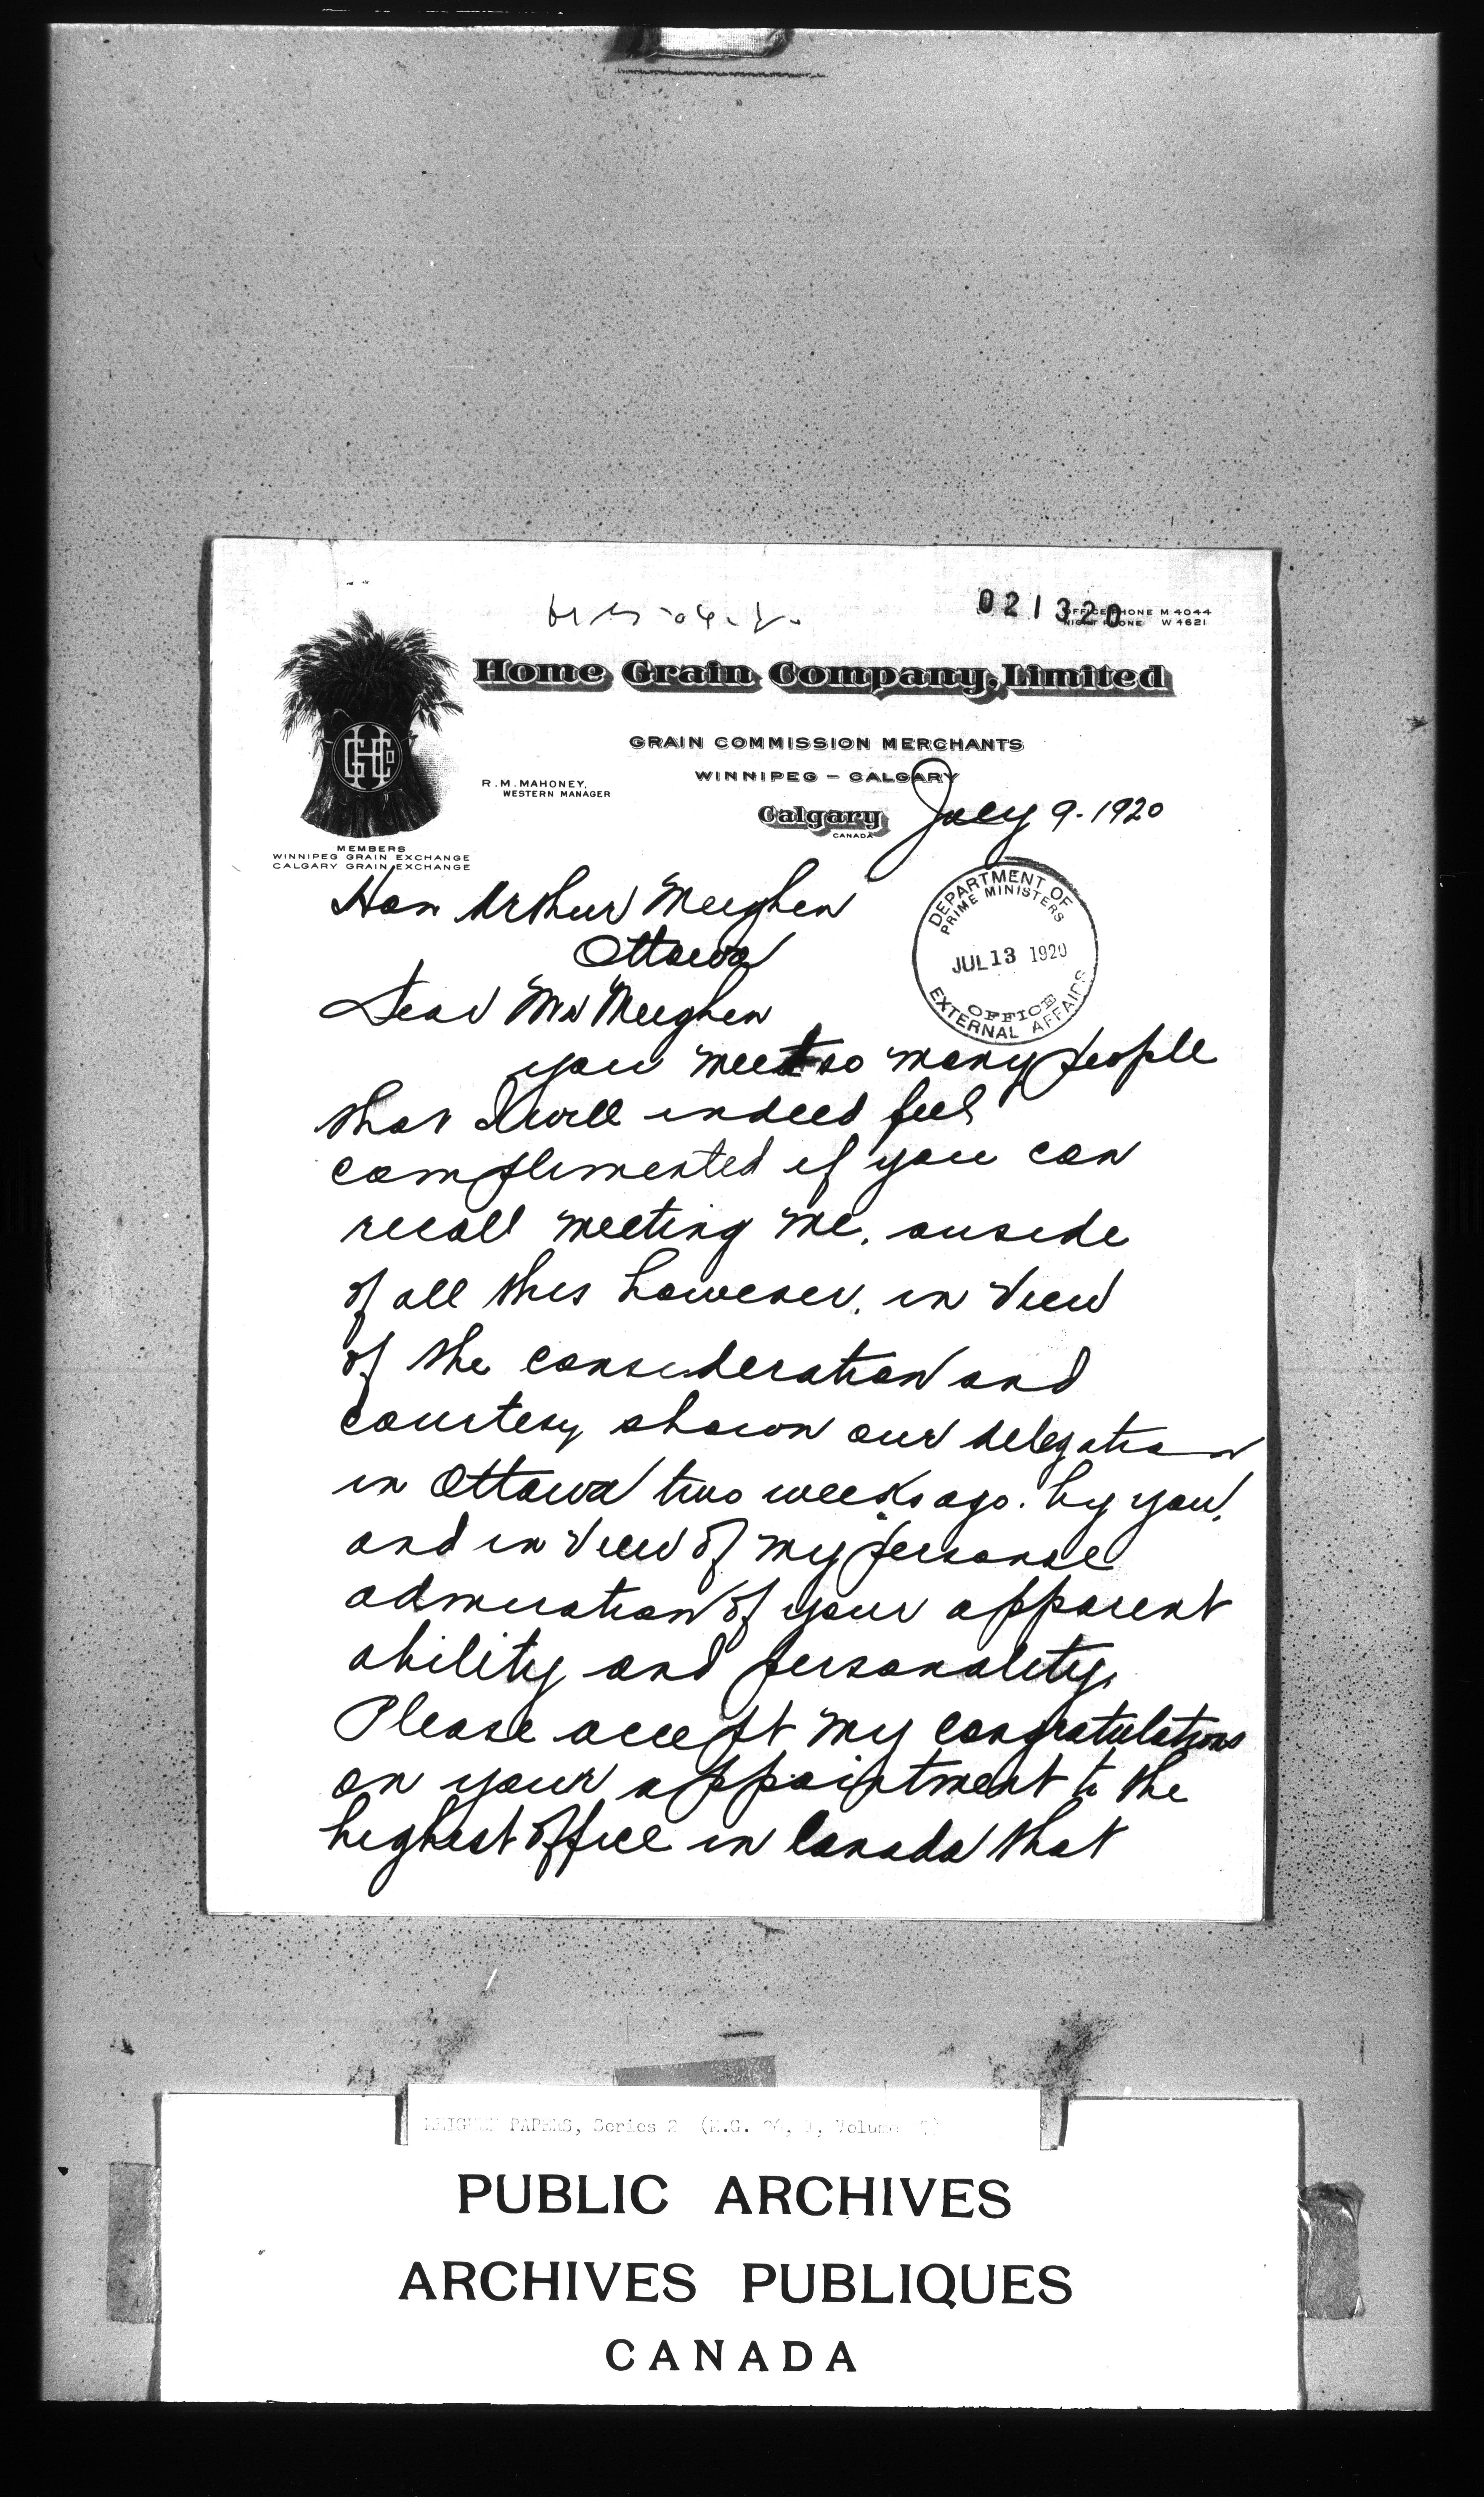 021320
OFFICE PHONE M 4044
NIGHT PHONE W 4621
Home Grain Company, Limited
GHCo
GRAIN COMMISSION MERCHANTS
WINNIPEG - CALGARY
R. M. MAHONEY,
WESTERN MANAGER
Calgary
CANADA
July 9. 1920
MEMBERS
WINNIPEG GRAIN EXCHANGE
CALGARY GRAIN EXCHANGE
DEPARTMENT OF
PRIME MINISTERS
JUL 13 1920
OFFICE
EXTERNAL AFFAIRS
Hon Arthur Meighen
Ottawa
Dear Mr Meighen
you meet so many people
that I will indeed feel
complimented if you can
recall meeting me. ouside
of all this however, in view
of the consideration and
courtesy shown our delegation
in Ottawa two weeks ago. by you,
and in view of my personal
admiration of your apparent
ability and personality.
Please accept my congratulations
on your appointment to the
highest office in Canada that
MEIGHEN PAPERS, Series 2 (M.G. 26, I, Volume
PUBLIC ARCHIVES
ARCHIVES PUBLIQUES
CANADA